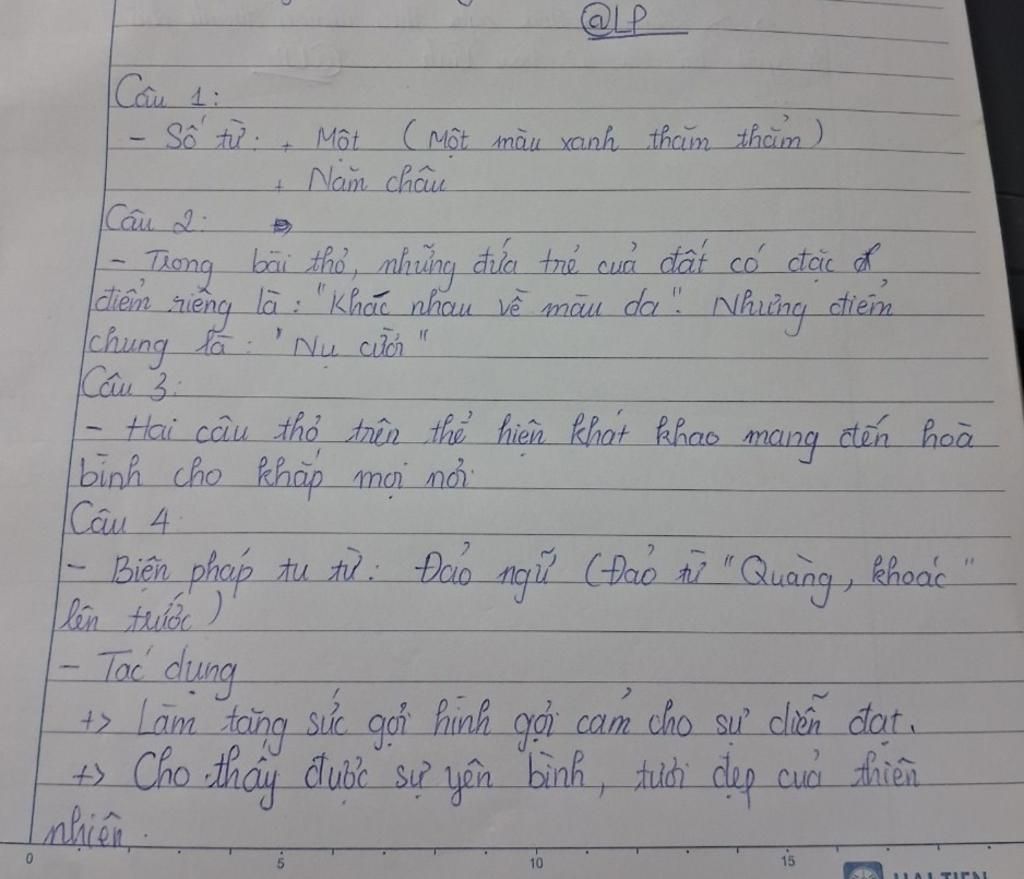 @LP
Câu 1:
- Số từ: + Một (Một màu xanh thăm thẳm)
+ Năm châu
Câu 2:
- Trong bài thơ, những đứa trẻ của đất có đặc
điểm riêng là: "Khác nhau về màu da". Nhưng điểm
chung là: "Nụ cười"
Câu 3:
- Hai câu thơ trên thể hiện khát khao mang đến hoà
bình cho khắp mọi nơi.
Câu 4
- Biện pháp tu từ: Đảo ngữ (Đảo từ "Quàng, khoác"
lên trước)
- Tác dụng
+> Làm tăng sức gợi hình gợi cảm cho sự diễn đạt.
+> Cho thấy được sự yên bình, tươi đẹp của thiên
nhiên.
0 5 10 15
HAI TIEN